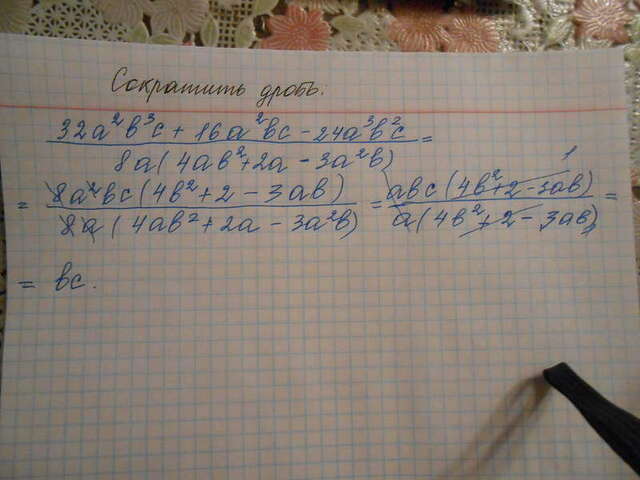 Сократить дробь:
32a²b³c + 16a²bc - 24a³b²c =
8a(4ab²+2a - 3a²b)
= 8a²bc(4b²+2 - 3ab) = abc(4b²+2-3ab) 1 =
8a(4ab²+2a - 3a²b) a(4b²+2 - 3ab) 1
= bc.